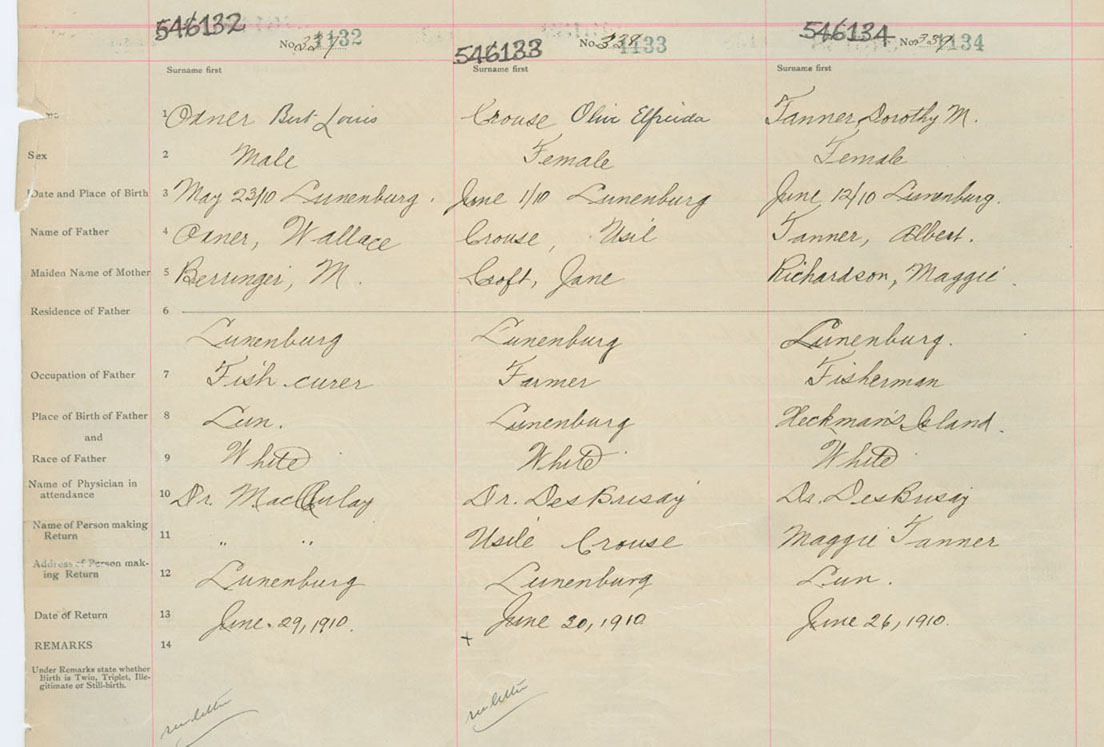 546132 No. 337 1132 546133 No. 338 1133 546134 No. 339 1134
Surname first Surname first Surname first
1 Oxner Bert Louis Crouse Oliv Elfreida Tanner, Dorothy M.
Sex 2 Male Female Female
Date and Place of Birth 3 May 23/10 Lunenburg. June 1/10 Lunenburg June 12/10 Lunenburg.
Name of Father 4 Oxner, Wallace Crouse, Usil Tanner, Albert.
Maiden Name of Mother 5 Berringer, M. Croft, Jane Richardson, Maggie.
Residence of Father 6
Lunenburg Lunenburg Lunenburg.
Occupation of Father 7 Fish curer Farmer Fisherman
Place of Birth of Father 8 Lun. Lunenburg Heckman's Island.
and
Race of Father 9 White White White
Name of Physician in
attendance 10 Dr. MacAulay Dr. DesBrisay Dr. DesBrisay
Name of Person making
Return 11 " " Usile Crouse Maggie Tanner
Address of Person mak-
ing Return 12 Lunenburg Lunenburg Lun.
Date of Return 13 June. 29, 1910. June 20, 1910 June 26, 1910.
REMARKS 14 +
Under Remarks state whether
Birth is Twin, Triplet, Ille-
gitimate or Still-birth.